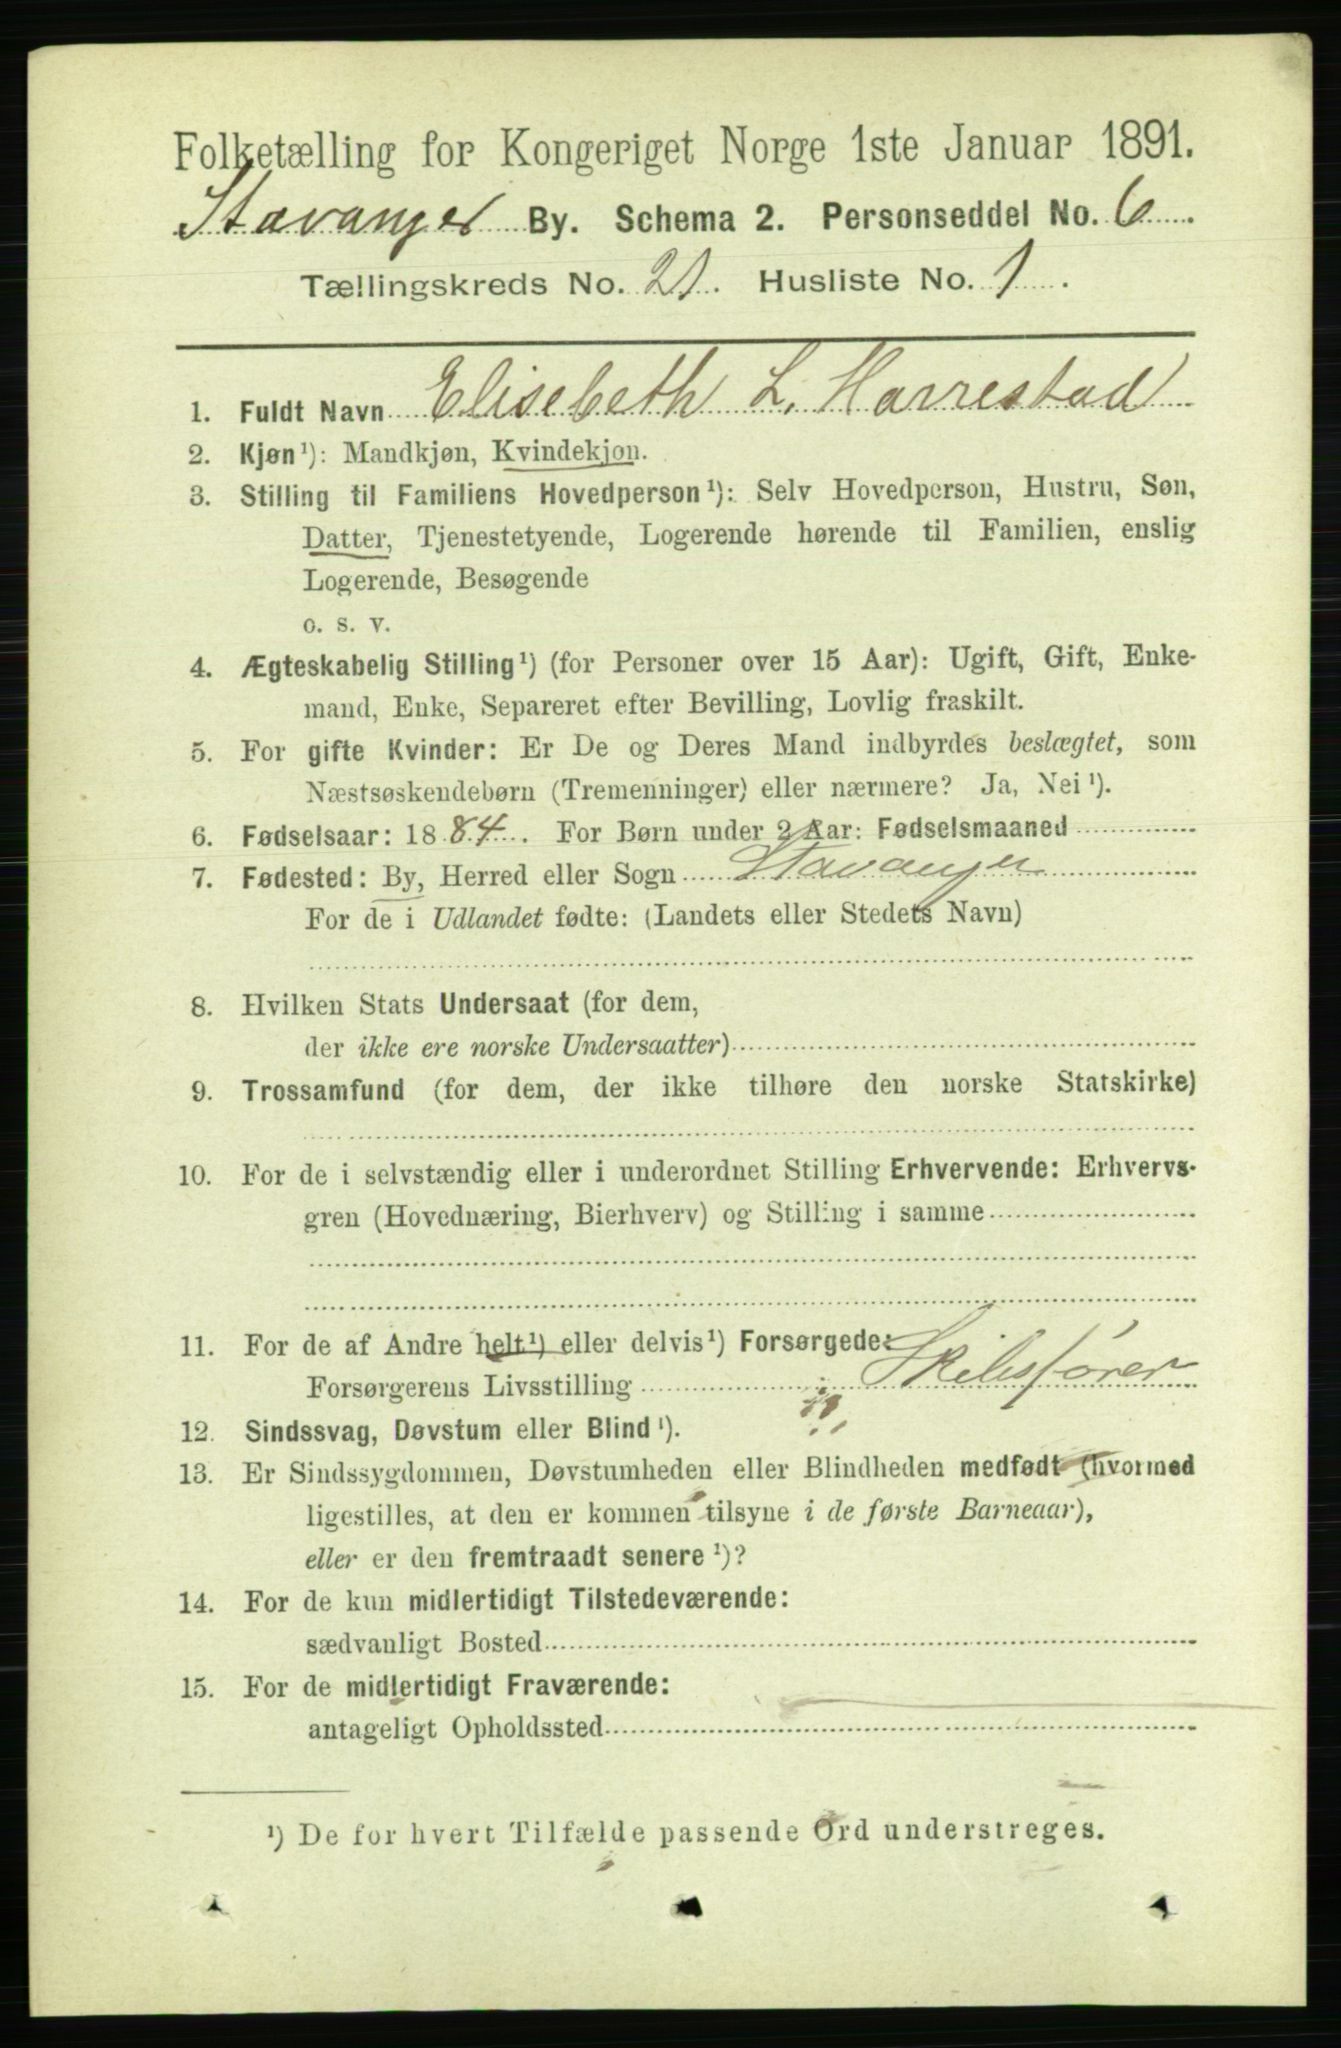 Folketælling for Kongeriget Norge 1ste Januar 1891.
Stavanger By. Schema 2. Personseddel No. 6.
Tællingskreds No. 21. Husliste No. 1.
1. Fuldt Navn Elisebeth L. Harrestad
2. Kjøn¹): Mandkjøn, Kvindekjøn.
3. Stilling til Familiens Hovedperson¹): Selv Hovedperson, Hustru, Søn,
Datter, Tjenestetyende, Logerende hørende til Familien, enslig
Logerende, Besøgende
o. s. v.
4. Ægteskabelig Stilling¹) (for Personer over 15 Aar): Ugift, Gift, Enke-
mand, Enke, Separeret efter Bevilling, Lovlig fraskilt.
5. For gifte Kvinder: Er De og Deres Mand indbyrdes beslægtet, som
Næstsøskendebørn (Tremenninger) eller nærmere? Ja, Nei¹).
6. Fødselsaar: 1884. For Børn under 2 Aar: Fødselsmaaned
7. Fødested: By, Herred eller Sogn Stavanger
For de i Udlandet fødte: (Landets eller Stedets Navn)
8. Hvilken Stats Undersaat (for dem,
der ikke ere norske Undersaatter)
9. Trossamfund (for dem, der ikke tilhøre den norske Statskirke)
10. For de i selvstændig eller i underordnet Stilling Erhvervende: Erhvervs-
gren (Hovednæring, Bierhverv) og Stilling i samme
11. For de af Andre helt¹) eller delvis¹) Forsørgede:
Forsørgerens Livsstilling Skibsfører
12. Sindssvag, Døvstum eller Blind¹).
13. Er Sindssygdommen, Døvstumheden eller Blindheden medfødt (hvormed
ligestilles, at den er kommen tilsyne i de første Barneaar),
eller er den fremtraadt senere¹)?
14. For de kun midlertidigt Tilstedeværende:
sædvanligt Bosted
15. For de midlertidigt Fraværende:
antageligt Opholdssted
¹) De for hvert Tilfælde passende Ord understreges.